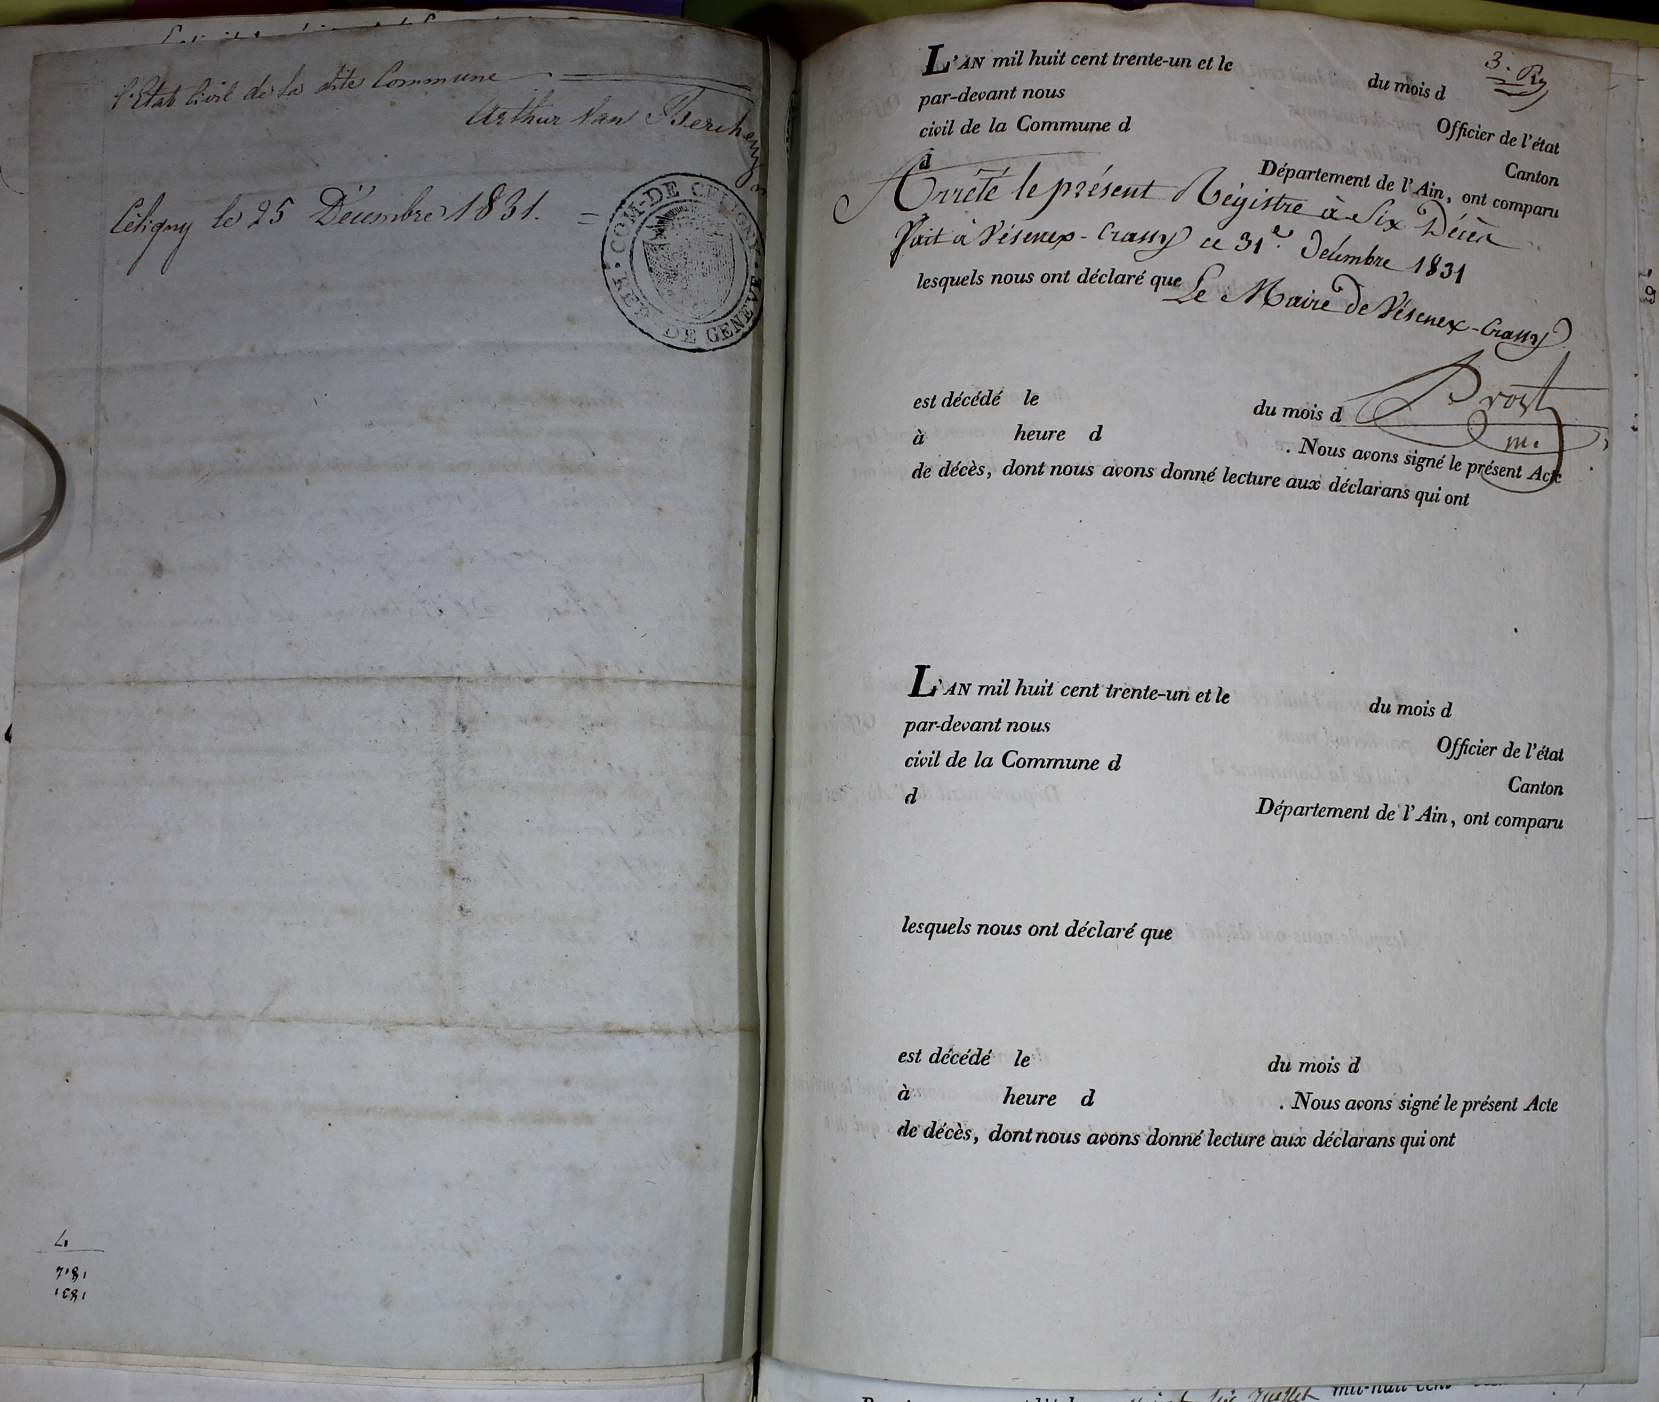 l'Etat Civil de la dite Commune
Arthur Van Berchem
Céligny le 25 Décembre 1831. =
COM. DE CELIGNY. REP. DE GENEVE
4
1831
3. Rº
L'AN mil huit cent trente-un et le du mois d
par-devant nous Officier de l'état
civil de la Commune d Canton
d Département de l'Ain, ont comparu
Arrêté le présent Régistre à Six Décès
fait à Vésenex-Crassy ce 31e. Décembre 1831
lesquels nous ont déclaré que
Le Maire de Vésenex-Crassy
Prost
m.
est décédé le du mois d
à heure d . Nous avons signé le présent Acte
de décès, dont nous avons donné lecture aux déclarans qui ont
L'AN mil huit cent trente-un et le du mois d
par-devant nous Officier de l'état
civil de la Commune d Canton
d Département de l'Ain, ont comparu
lesquels nous ont déclaré que
est décédé le du mois d
à heure d . Nous avons signé le présent Acte
de décès, dont nous avons donné lecture aux déclarans qui ont